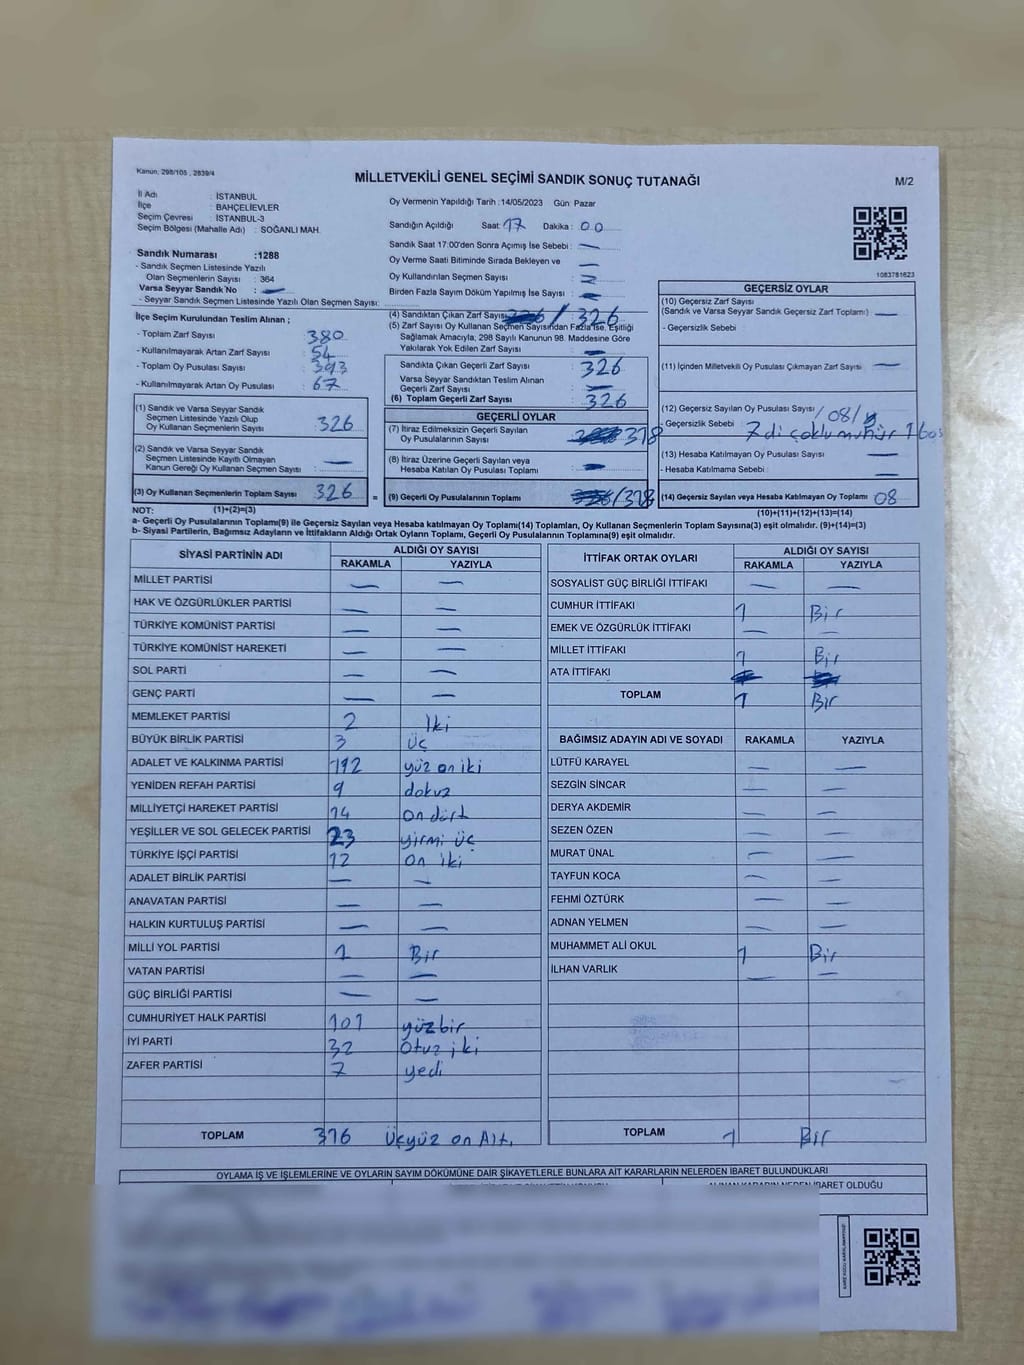 Kanun, 298/105 , 2839/4
MİLLETVEKİLİ GENEL SEÇİMİ SANDIK SONUÇ TUTANAĞI
M/2
İl Adı : İSTANBUL
İlçe : BAHÇELİEVLER
Seçim Çevresi : İSTANBUL-3
Seçim Bölgesi (Mahalle Adı) : SOĞANLI MAH.
Sandık Numarası :1288
- Sandık Seçmen Listesinde Yazılı
Olan Seçmenlerin Sayısı : 364
Varsa Seyyar Sandık No : —
- Seyyar Sandık Seçmen Listesinde Yazılı Olan Seçmen Sayısı:
Oy Vermenin Yapıldığı Tarih :14/05/2023 Gün: Pazar
Sandığın Açıldığı Saat: 17 Dakika : 00
Sandık Saat 17:00'den Sonra Açımış İse Sebebi : —
Oy Verme Saati Bitiminde Sırada Bekleyen ve
Oy Kullandırılan Seçmen Sayısı : —
Birden Fazla Sayım Döküm Yapılmış İse Sayısı : —
1083781623
İlçe Seçim Kurulundan Teslim Alınan ;
- Toplam Zarf Sayısı : 380
- Kullanılmayarak Artan Zarf Sayısı : 54
- Toplam Oy Pusulası Sayısı : 393
- Kullanılmayarak Artan Oy Pusulası : 67
(1) Sandık ve Varsa Seyyar Sandık
Seçmen Listesinde Yazılı Olup
Oy Kullanan Seçmenlerin Sayısı : 326
(2) Sandık ve Varsa Seyyar Sandık
Seçmen Listesinde Kayıtlı Olmayan
Kanun Gereği Oy Kullanan Seçmen Sayısı : —
(3) Oy Kullanan Seçmenlerin Toplam Sayısı : 326
(4) Sandıktan Çıkan Zarf Sayısı : / 326
(5) Zarf Sayısı Oy Kullanan Seçmen Sayısından Fazla ise, Eşitliği
Sağlamak Amacıyla, 298 Sayılı Kanunun 98. Maddesine Göre
Yakılarak Yok Edilen Zarf Sayısı : —
Sandıkta Çıkan Geçerli Zarf Sayısı : 326
Varsa Seyyar Sandıktan Teslim Alınan
Geçerli Zarf Sayısı : —
(6) Toplam Geçerli Zarf Sayısı : 326
GEÇERLİ OYLAR
(7) İtiraz Edilmeksizin Geçerli Sayılan
Oy Pusulalarının Sayısı : 318
(8) İtiraz Üzerine Geçerli Sayılan veya
Hesaba Katılan Oy Pusulası Toplamı : —
= (9) Geçerli Oy Pusulalarının Toplamı : /318
GEÇERSİZ OYLAR
(10) Geçersiz Zarf Sayısı
(Sandık ve Varsa Seyyar Sandık Geçersiz Zarf Toplamı) : —
- Geçersizlik Sebebi :
(11) İçinden Milletvekili Oy Pusulası Çıkmayan Zarf Sayısı : —
(12) Geçersiz Sayılan Oy Pusulası Sayısı : /08/
- Geçersizlik Sebebi : 7 di çoklu mühür 1 boş
(13) Hesaba Katılmayan Oy Pusulası Sayısı : —
- Hesaba Katılmama Sebebi : —
(14) Geçersiz Sayılan veya Hesaba Katılmayan Oy Toplamı : 08
NOT: (1)+(2)=(3) (10)+(11)+(12)+(13)=(14)
a- Geçerli Oy Pusulalarının Toplamı(9) ile Geçersiz Sayılan veya Hesaba katılmayan Oy Toplamı(14) Toplamları, Oy Kullanan Seçmenlerin Toplam Sayısına(3) eşit olmalıdır. (9)+(14)=(3)
b- Siyasi Partilerin, Bağımsız Adayların ve İttifakların Aldığı Ortak Oyların Toplamı, Geçerli Oy Pusulalarının Toplamına(9) eşit olmalıdır.
SİYASİ PARTİNİN ADI ALDIĞI OY SAYISI
RAKAMLA YAZIYLA
MİLLET PARTİSİ — —
HAK VE ÖZGÜRLÜKLER PARTİSİ — —
TÜRKİYE KOMÜNİST PARTİSİ — —
TÜRKİYE KOMÜNİST HAREKETİ — —
SOL PARTİ — —
GENÇ PARTİ — —
MEMLEKET PARTİSİ 2 İki
BÜYÜK BİRLİK PARTİSİ 3 Üç
ADALET VE KALKINMA PARTİSİ 112 yüz on iki
YENİDEN REFAH PARTİSİ 9 dokuz
MİLLİYETÇİ HAREKET PARTİSİ 14 on dört
YEŞİLLER VE SOL GELECEK PARTİSİ 23 yirmi üç
TÜRKİYE İŞÇİ PARTİSİ 12 on iki
ADALET BİRLİK PARTİSİ — —
ANAVATAN PARTİSİ — —
HALKIN KURTULUŞ PARTİSİ — —
MİLLİ YOL PARTİSİ 1 Bir
VATAN PARTİSİ — —
GÜÇ BİRLİĞİ PARTİSİ — —
CUMHURİYET HALK PARTİSİ 101 yüzbir
İYİ PARTİ 32 Otuz iki
ZAFER PARTİSİ 7 yedi
TOPLAM 316 Üçyüz on Altı
İTTİFAK ORTAK OYLARI ALDIĞI OY SAYISI
RAKAMLA YAZIYLA
SOSYALİST GÜÇ BİRLİĞİ İTTİFAKI — —
CUMHUR İTTİFAKI 1 Bir
EMEK VE ÖZGÜRLÜK İTTİFAKI — —
MİLLET İTTİFAKI 1 Bir
ATA İTTİFAKI
TOPLAM 1 Bir
BAĞIMSIZ ADAYIN ADI VE SOYADI RAKAMLA YAZIYLA
LÜTFÜ KARAYEL — —
SEZGİN SİNCAR — —
DERYA AKDEMİR — —
SEZEN ÖZEN — —
MURAT ÜNAL — —
TAYFUN KOCA — —
FEHMİ ÖZTÜRK — —
ADNAN YELMEN — —
MUHAMMET ALİ OKUL 1 Bir
İLHAN VARLIK — —
TOPLAM 1 Bir
OYLAMA İŞ VE İŞLEMLERİNE VE OYLARIN SAYIM DÖKÜMÜNE DAİR ŞİKAYETLERLE BUNLARA AİT KARARLARIN NELERDEN İBARET BULUNDUKLARI
ALINAN KARARIN NEDEN İBARET OLDUĞU